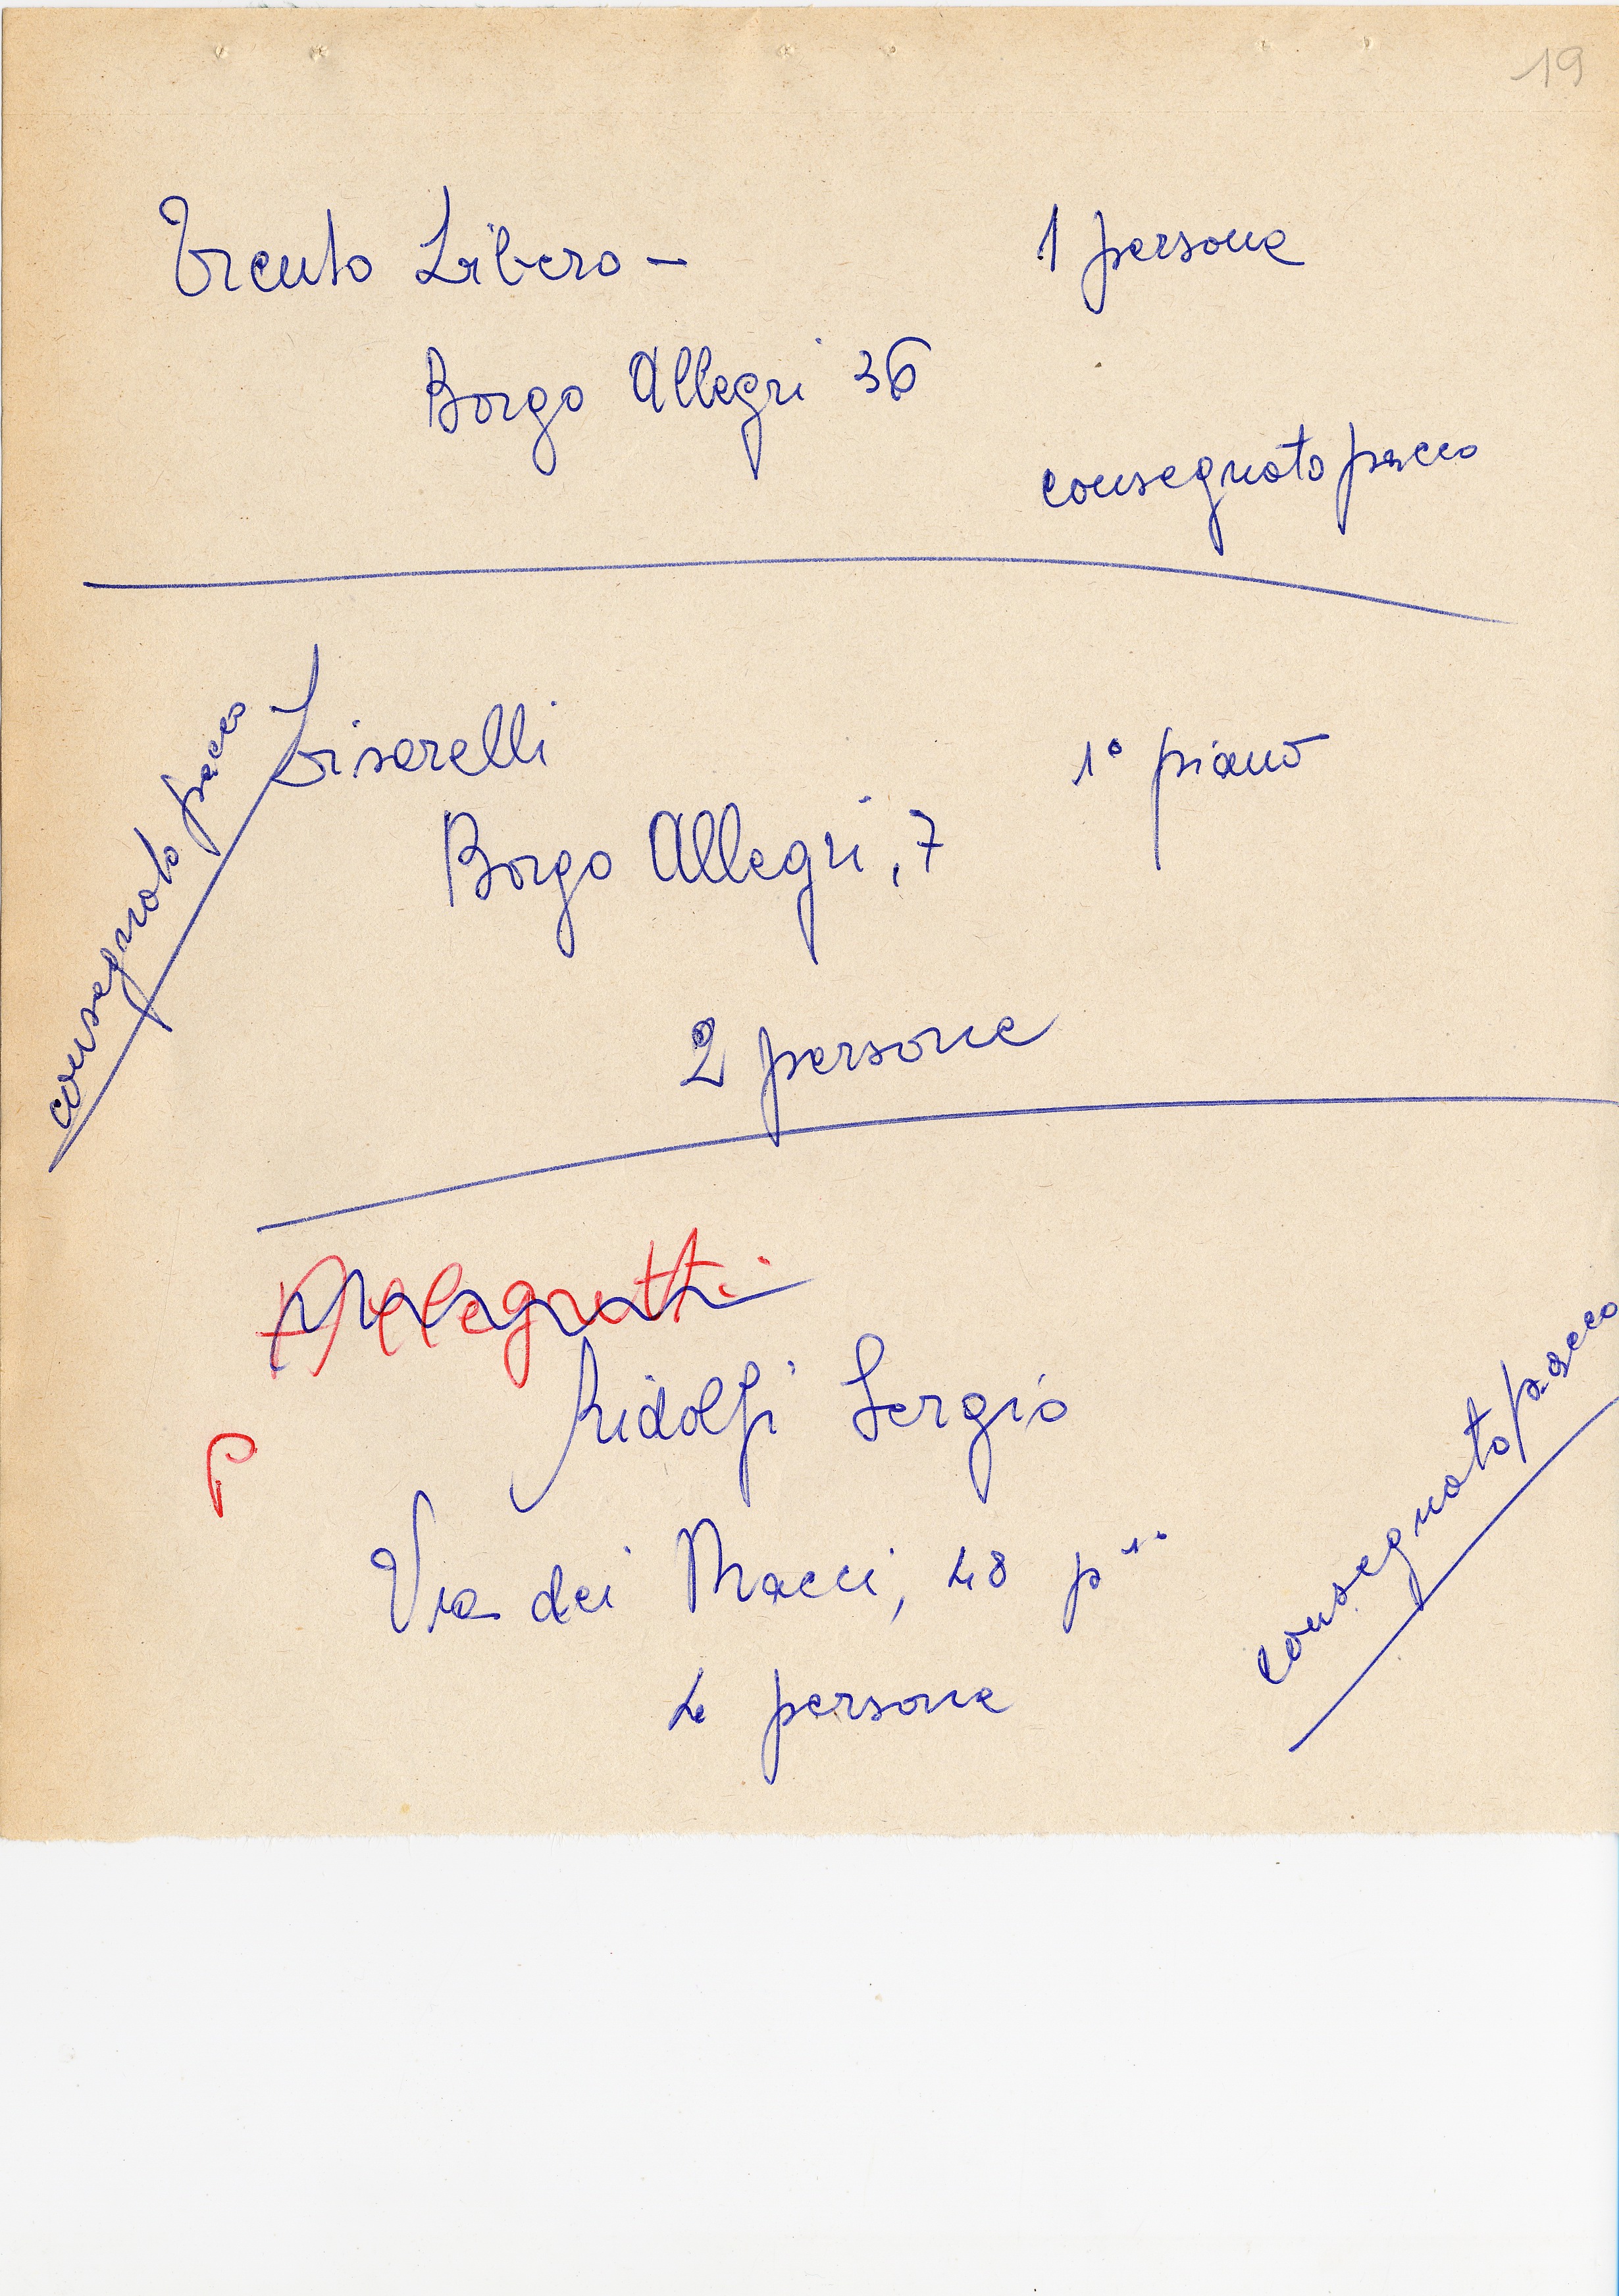 19
Trento Libero - 1 persone
Borgo Allegri 36
consegnato pacco
consegnato pacco
Lisarelli 1° piano
Borgo Allegri, 7
2 persone
Ridolfi Sergio
P
Via dei Macci, 48 p
4 persone
consegnato pacco